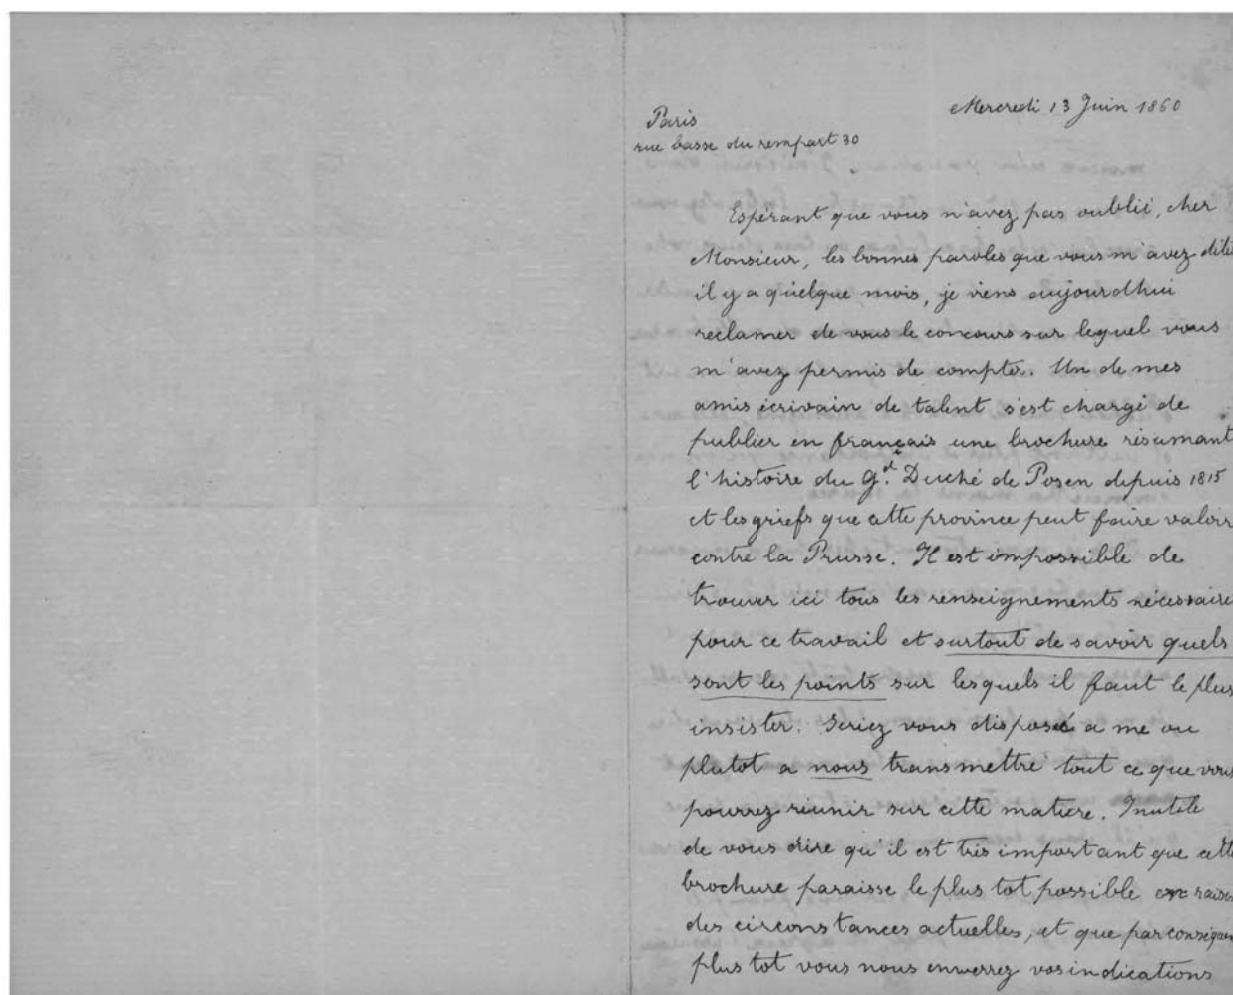 Mercredi 13 Juin 1860
Paris
rue basse du rempart 30
Espérant que vous n'avez pas oublié, cher
Monsieur, les bonnes paroles que vous m'avez dites
il y a quelque mois, je viens aujourdhui
reclamer de vous le concours sur lequel vous
m'avez permis de compter. Un de mes
amis écrivain de talent s'est chargé de
publier en français une brochure résumant
l'histoire du Gd. Duché de Posen depuis 1815
et les griefs que cette province peut faire valoir
contre la Prusse. Il est impossible de
trouver ici tous les renseignements nécessaires
pour ce travail et surtout de savoir quels
sont les points sur lesquels il faut le plus
insister. Seriez vous disposé a me ou
plutot a nous transmettre tout ce que vous
pourrez réunir sur cette matiere. Inutile
de vous dire qu'il est très important que cette
brochure paraisse le plus tot possible en raison
des circonstances actuelles, et que par conséquent
plus tot vous nous enverrez vos indications